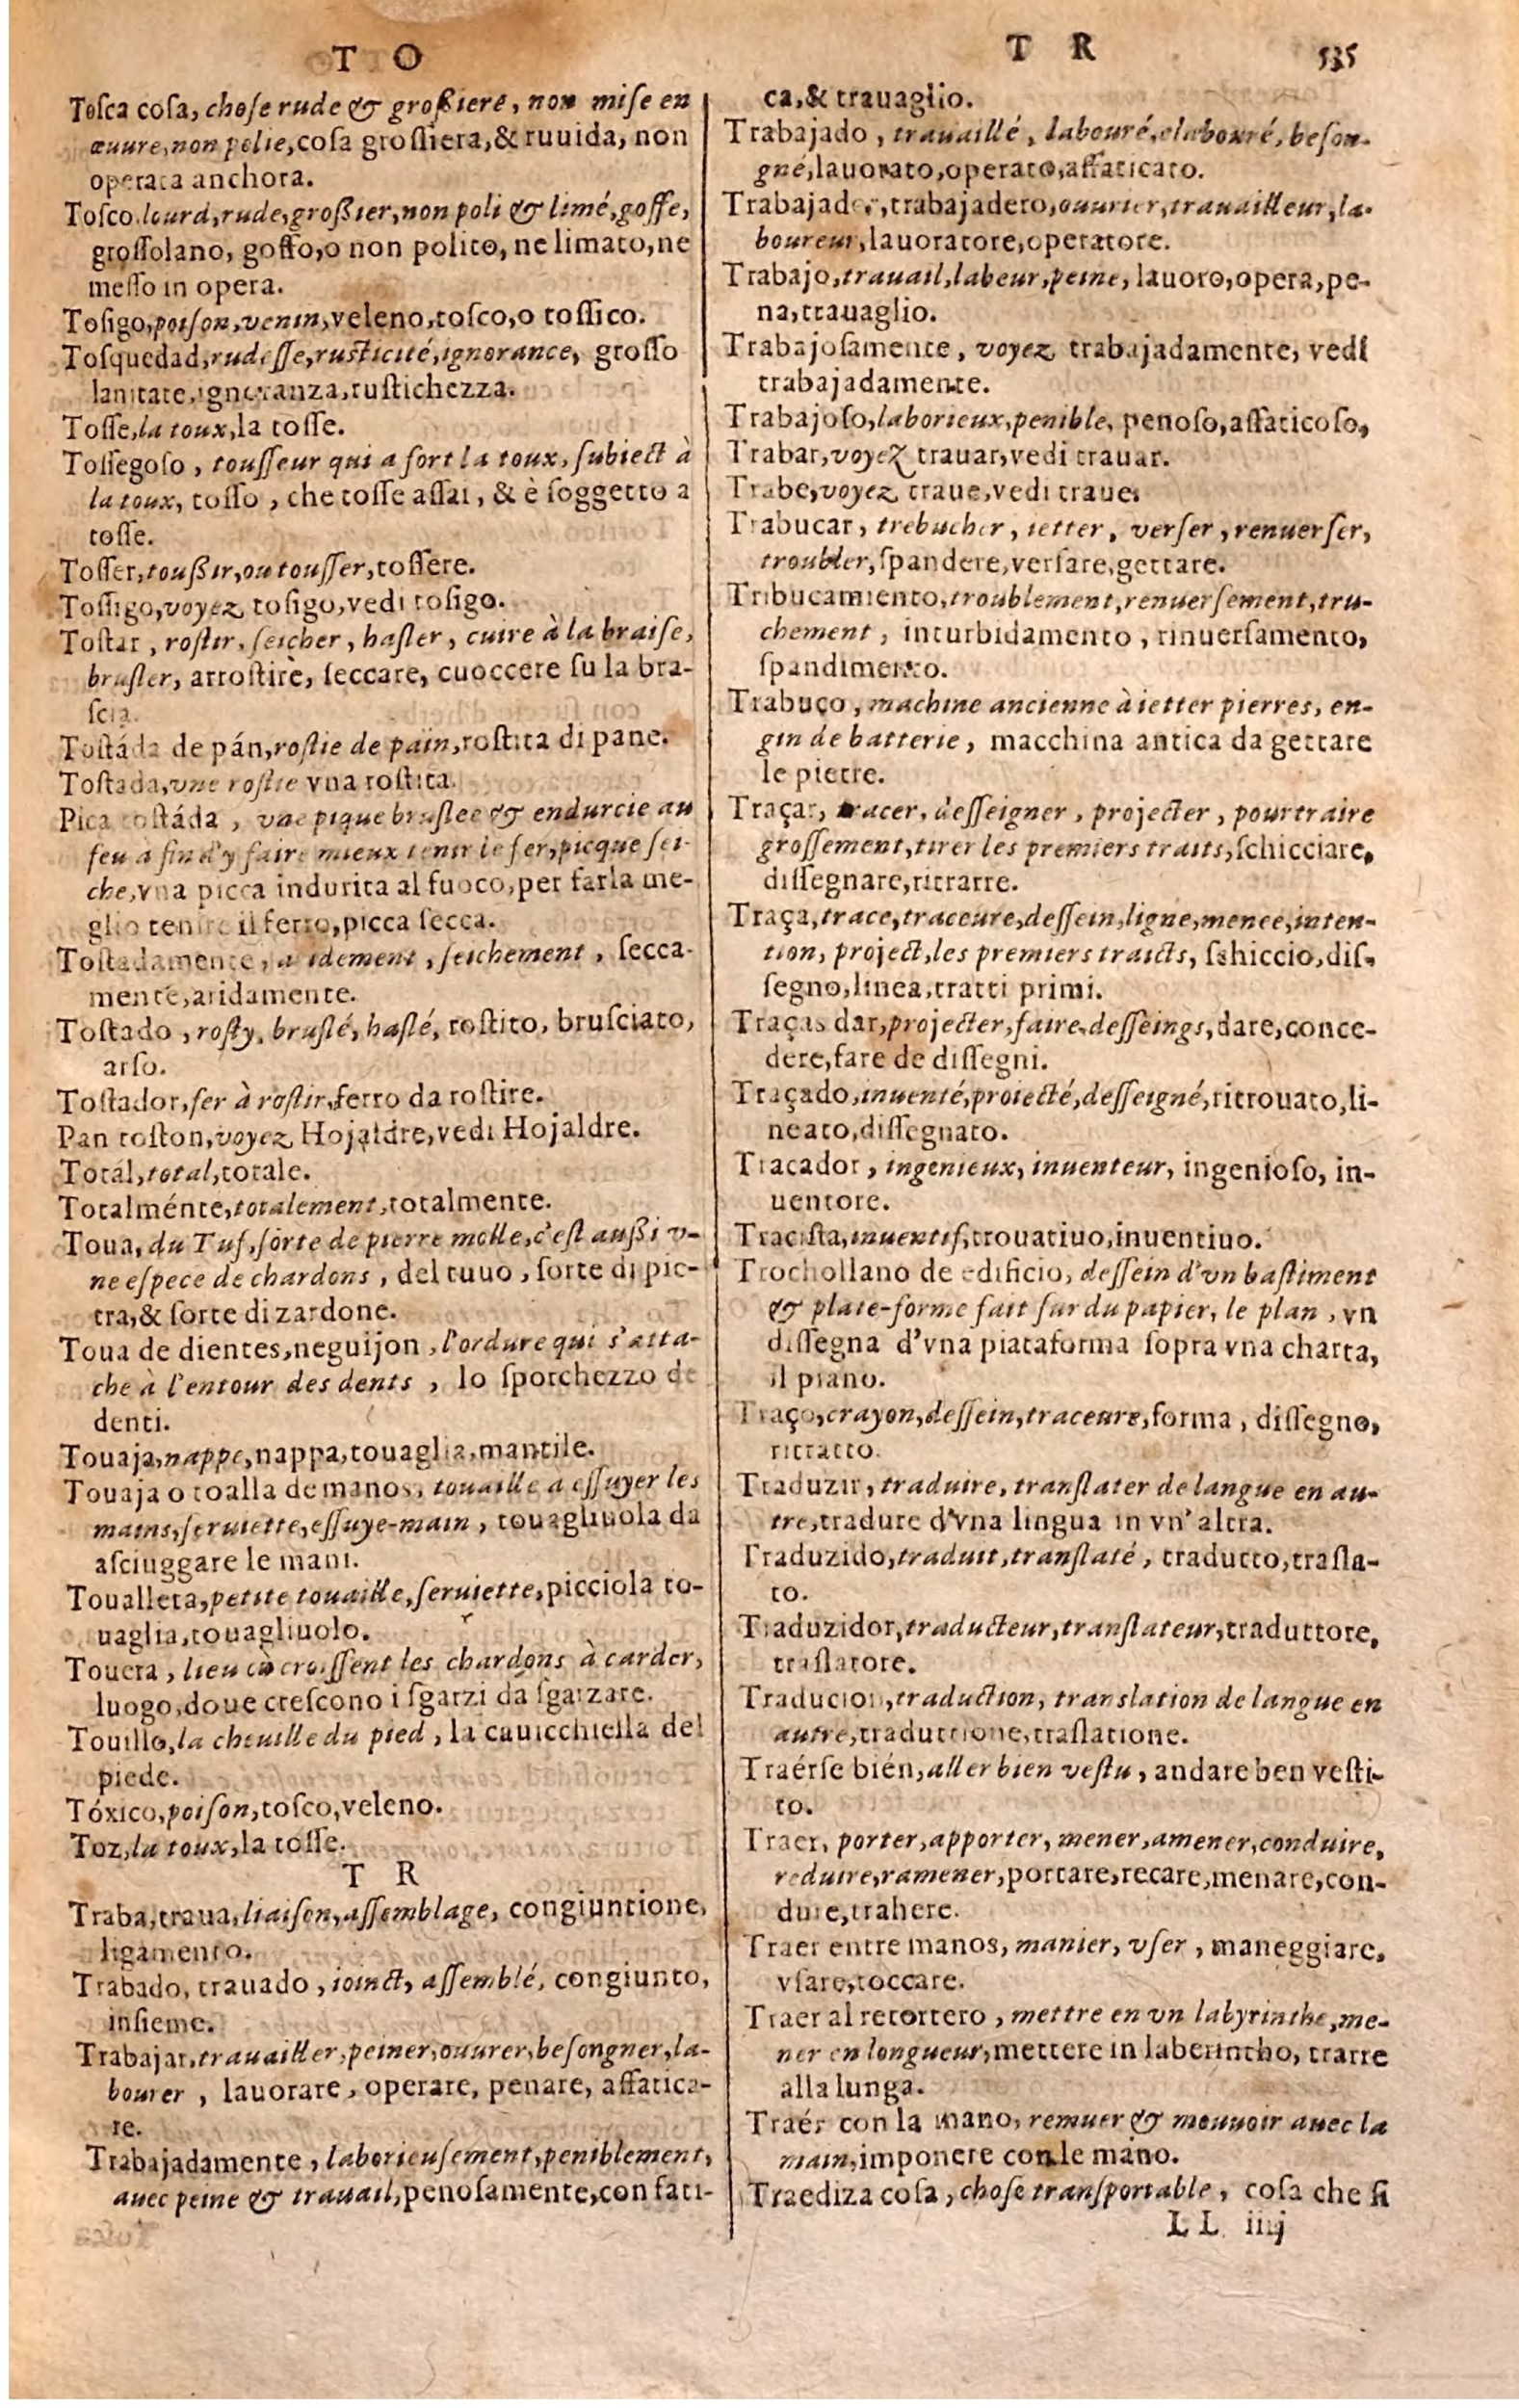 T O
Toſca coſa, choſe rude & großiere, non miſe en
œuure, non polie, coſa groſſiera, & ruuida, non
operata anchora.
Toſco lourd, rude, großier, non poli & limé, goffe,
groſſolano, goffo, o non polito, ne limato, ne
meſſo in opera.
Toſigo, poiſon, venin, veleno, toſco, o toſſico.
Toſquedad, rudeſſe, ruſticité, ignorance, groſſo
lanitate, ignoranza, ruſtichezza.
Toſſe, la toux, la toſſe.
Toſſegoſo, touſſeur qui a fort la toux, ſubiect à
la toux, toſſo, che toſſe aſſai, & è ſoggetto a
toſſe.
Toſſer, toußir, ou touſſer, toſſere.
Toſſigo, voyez toſigo, vedi toſigo.
Toſtar, roſtir, ſeicher, haſler, cuire à la braiſe,
bruſler, arroſtirè, ſeccare, cuoccere ſu la bra-
ſcia.
Toſtáda de pán, roſtie de pain, roſtita di pane.
Toſtada, vne roſtie vna roſtita.
Pica toſtáda, vne pique bruſlee & endurcie au
feu à fin d'y faire mieux tenir le fer, picque ſei-
che, vna picca indurita al fuoco, per farla me-
glio tenire il ferro, picca ſecca.
Toſtadamente, aridement, ſeichement, ſecca-
mente, aridamente.
Toſtado, roſty, bruſlé, haſlé, roſtito, bruſciato,
arſo.
Toſtador, fer à roſtir, ferro da roſtire.
Pan toſton, voyez Hojaldre, vedi Hojaldre.
Totál, total, totale.
Totalménte, totalement, totalmente.
Toua, du Tuf, ſorte de pierre molle, c'eſt außi v-
ne eſpece de chardons, del tuuo, ſorte di pie-
tra, & ſorte di zardone.
Toua de dientes, neguijon, l'ordure qui s'atta-
che à l'entour des dents, lo ſporchezzo de
denti.
Touaja, nappe, nappa, touaglia, mantile.
Touaja o toalla de manos, touaille a eſſuyer les
mains, ſeruiette, eſſuye-main, touagliuola da
aſciuggare le mani.
Toualleta, petite touaille, ſeruiette, picciola to-
uaglia, touagliuolo.
Touera, lieu où croiſſent les chardons à carder,
luogo, doue creſcono i ſgarzi da ſgarzare.
Touillo, la cheuille du pied, la cauicchiella del
piede.
Tóxico, poiſon, toſco, veleno.
Toz, la toux, la toſſe.
T R
Traba, traua, liaiſon, aſſemblage, congiuntione,
ligamento.
Trabado, trauado, ioinct, aſſemblé, congiunto,
inſieme.
Trabajar, trauailler, peiner, ouurer, beſongner, la-
bourer, lauorare, operare, penare, affatica-
re.
Trabajadamente, laborieuſement, peniblement,
auec peine & trauail, penoſamente, con fati-
T R 535
ca, & trauaglio.
Trabajado, trauaillé, labouré, elabouré, beſon-
gné, lauorato, operato, affaticato.
Trabajador, trabajadero, ouurier, trauailleur, la-
boureur, lauoratore, operatore.
Trabajo, trauail, labeur, peine, lauoro, opera, pe-
na, trauaglio.
Trabajoſamente, voyez trabajadamente, vedi
trabajadamente.
Trabajoſo, laborieux, penible, penoſo, affaticoſo,
Trabar, voyez trauar, vedi trauar.
Trabe, voyez traue, vedi traue.
Trabucar, trebucher, ietter, verſer, renuerſer,
troubler, ſpandere, verſare, gettare.
Tribucamiento, troublement, renuerſement, tru-
chement, inturbidamento, rinuerſamento,
ſpandimento.
Trabuco, machine ancienne à ietter pierres, en-
gin de batterie, macchina antica da gettare
le pietre.
Traçar, tracer, deſſeigner, projecter, pourtraire
groſſement, tirer les premiers traits, ſchicciare,
diſſegnare, ritrarre.
Traça, trace, traceure, deſſein, ligne, menee, inten-
tion, project, les premiers traicts, ſchiccio, diſ-
ſegno, linea, tratti primi.
Traças dar, projecter, faire, deſſeings, dare, conce-
dere, fare de diſſegni.
Traçado, inuenté, proiecté, deſſeigné, ritrouato, li-
neato, diſſegnato.
Tracador, ingenieux, inuenteur, ingenioſo, in-
uentore.
Traciſta, inuentif, trouatiuo, inuentiuo.
Trochollano de edificio, deſſein d'vn baſtiment
& plate-forme fait ſur du papier, le plan, vn
diſſegna d'vna piataforma ſopra vna charta,
il piano.
Traço, crayon, deſſein, traceure, forma, diſſegno,
ritratto.
Traduzir, traduire, tranſlater de langue en au-
tre, tradure d'vna lingua in vn' altra.
Traduzido, traduit, tranſlaté, tradutto, traſla-
to.
Traduzidor, traducteur, tranſlateur, traduttore,
traſlatore.
Traducion, traduction, translation de langue en
autre, traduttione, traſlatione.
Traérſe bién, aller bien veſtu, andare ben veſti-
to.
Traer, porter, apporter, mener, amener, conduire,
reduire, ramener, portare, recare, menare, con-
dure, trahere.
Traer entre manos, manier, vſer, maneggiare,
vſare, toccare.
Traer al retortero, mettre en vn labyrinthe, me-
ner en longueur, mettere in laberintho, trarre
alla lunga.
Traér con la mano, remuer & mouuoir auec la
main, imponere con le mano.
Traediza coſa, choſe tranſportable, coſa che ſi
LL iiij